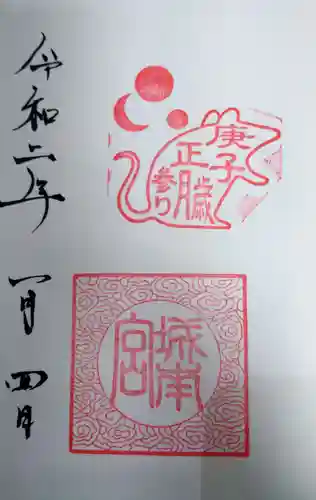 庚子
正臓
参り
城南
宮
令和二年
一月
四日